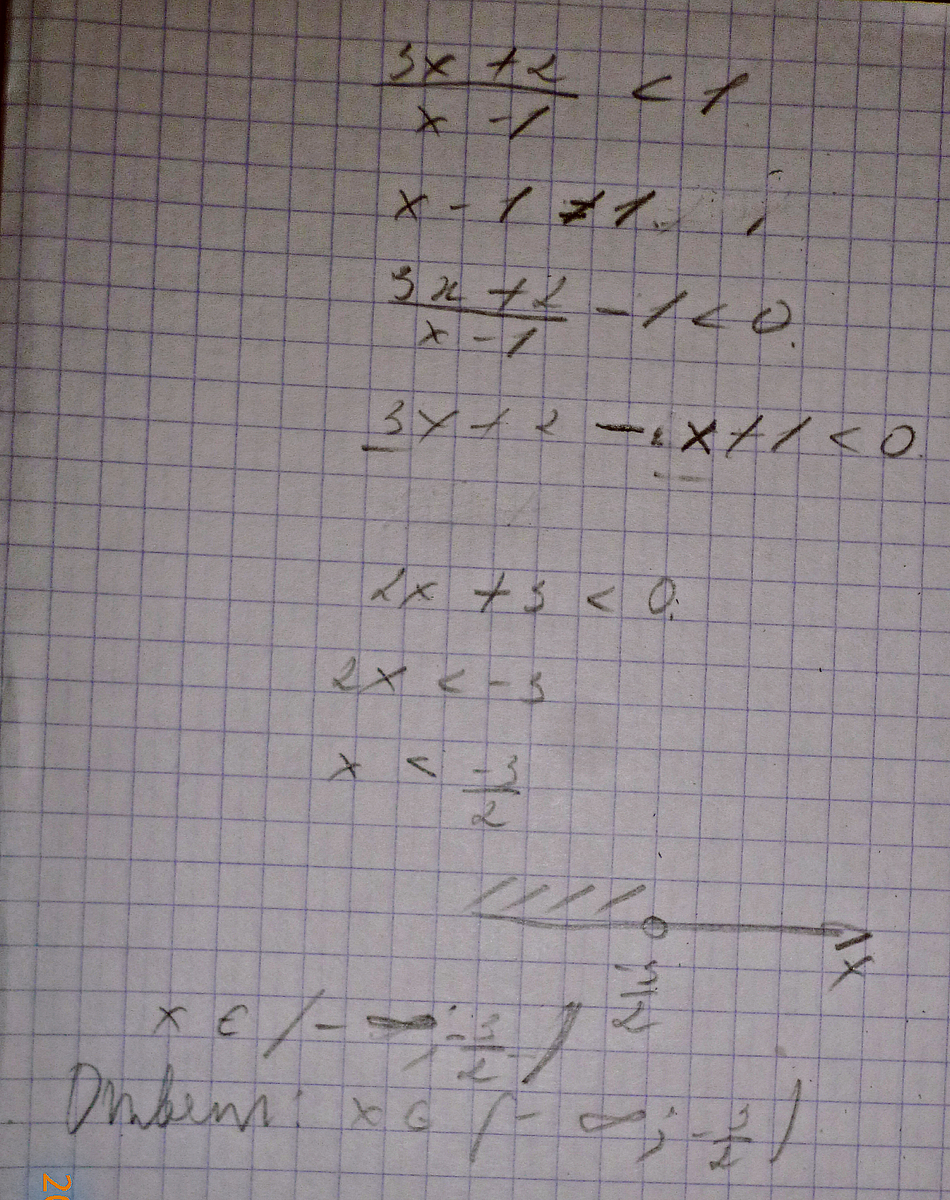 3x + 2 / x - 1 < 1
x - 1 ≠ 1
3x + 2 / x - 1 - 1 < 0.
3x + 2 - x + 1 < 0.
2x + 3 < 0.
2x < -3
x < -3/2
-3/2 x
x ∈ (-∞; -3/2)
Ответ: x ∈ (-∞; -3/2)